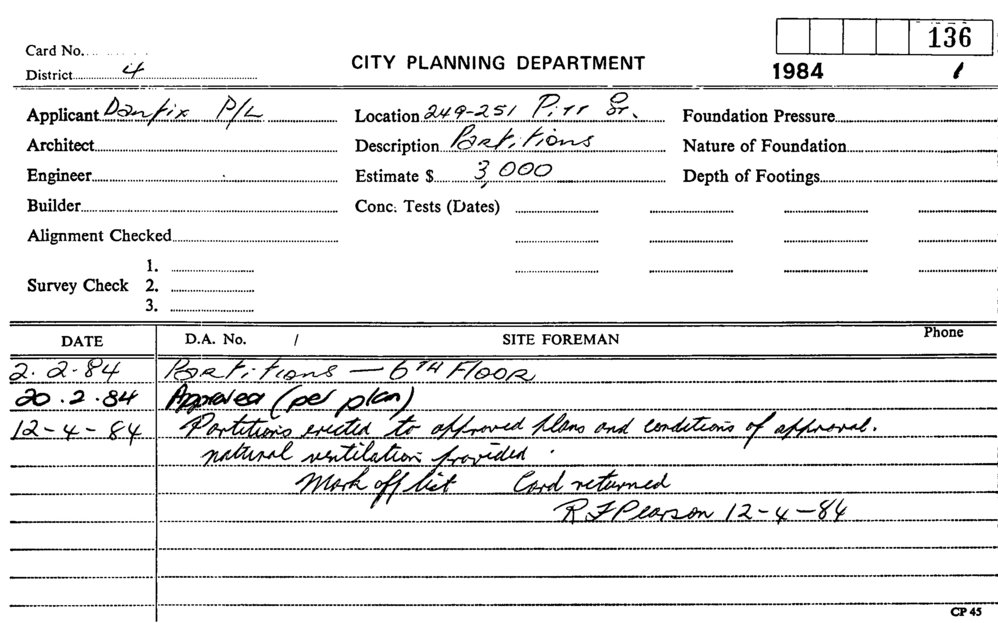 136
Card No.
District 4
CITY PLANNING DEPARTMENT
1984 1
Applicant Danfix P/L
Location 249-251 Pitt St.
Foundation Pressure
Architect
Description Partitions
Nature of Foundation
Engineer
Estimate $ 3,000
Depth of Footings
Builder
Conc. Tests (Dates)
Alignment Checked
1.
Survey Check 2.
3.
DATE D.A. No. / SITE FOREMAN Phone
2.2.84 Partitions — 6TH FLOOR
20.2.84 Approved (per plan)
12-4-84 Partitions erected to approved plans and conditions of approval.
natural ventilation provided.
Mark off list Card returned
R F Pearson 12-4-84
CP 45